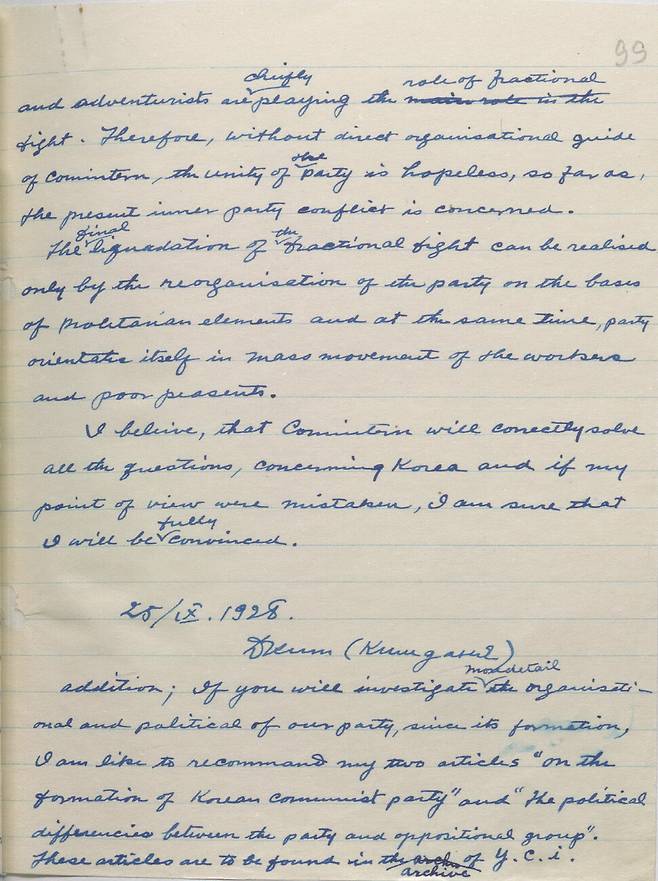 99
and adventurists are chiefly playing the role of fractional main role in the
fight. Therefore, without direct organisational guide
of Comintern, the unity of the party is hopeless, so far as,
the present inner party conflict is concerned.
The final liquadation of the fractional fight can be realised
only by the reorganisation of the party on the bases
of prolitarian elements and at the same time, party
orientates itself in mass movement of the workers
and poor peasents.
I beleive, that Comintern will correctly solve
all the questions, concerning Korea and if my
point of view were mistaken, I am sure that
I will be fully convinced.
25/IX. 1928.
addition; If you will investigate more detail the organisati-
onal and political of our party, since its formation,
I am like to recommand my two articles "on the
formation of Korean communist party" and "the political
differencies between the party and oppositional group".
These articles are to be found in the archive of Y.C.i.